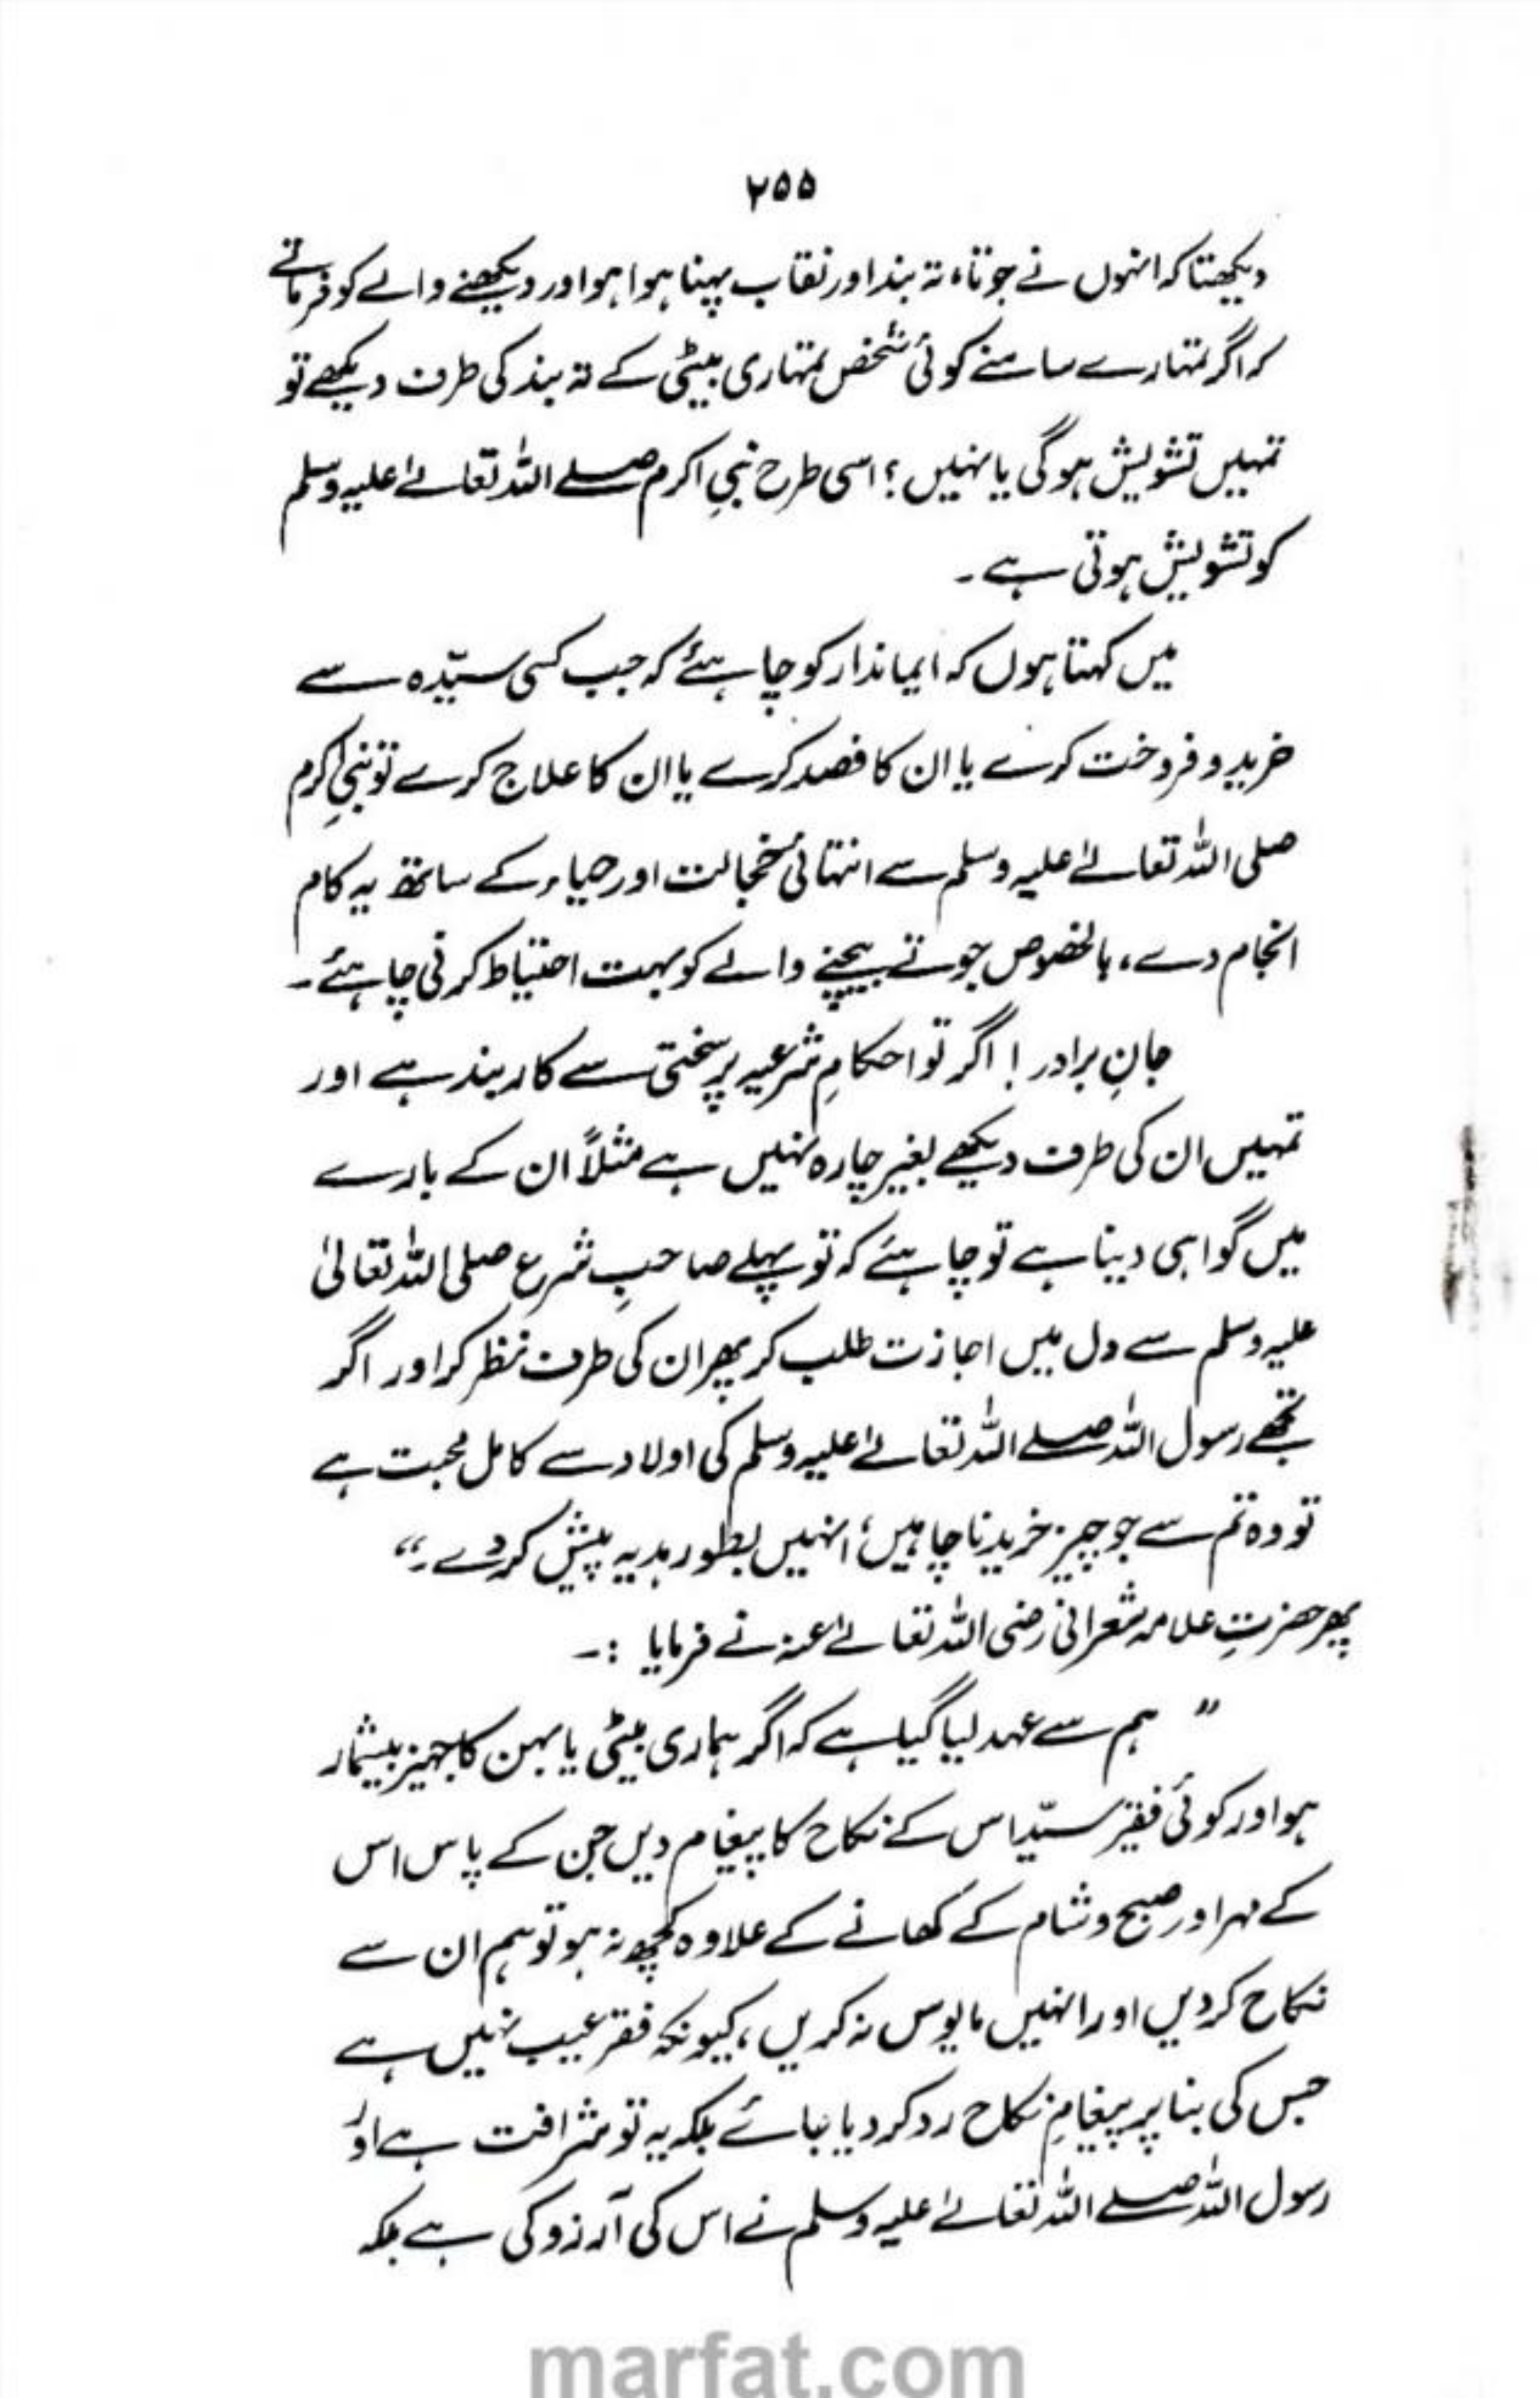 ۲۵۵
دیکھتا کہ انہوں نے جوتا، تہ بند اور نقاب پہنا ہوا ہو اور دیکھنے والے کو فرماتے
کہ اگر تمہارے سامنے کوئی شخص تمہاری بیٹی کے تہ بند کی طرف دیکھے تو
تمہیں تشویش ہوگی یا نہیں ؟ اسی طرح نبیِ اکرم صلے اللہ تعالےٰ علیہ وسلم
کو تشویش ہوتی ہے ۔
میں کہتا ہوں کہ ایماندار کو چاہئے کہ جب کسی سیّدہ سے
خرید و فروخت کرے یا ان کا فصد کرے یا ان کا علاج کرے تو نبیِ اکرم
صلی اللہ تعالےٰ علیہ وسلم سے انتہائی خجالت اور حیاء کے ساتھ یہ کام
انجام دے، بالخصوص جوتے بیچنے والے کو بہت احتیاط کرنی چاہئے ۔
جانِ برادر ! اگر تو احکامِ شرعیہ پر سختی سے کاربند ہے اور
تمہیں ان کی طرف دیکھے بغیر چارہ نہیں ہے مثلاً ان کے بارے
میں گواہی دینا ہے تو چاہئے کہ تو پہلے صاحبِ شرع صلی اللہ تعالیٰ
علیہ وسلم سے دل میں اجازت طلب کر پھر ان کی طرف نظر کر اور اگر
تجھے رسول اللہ صلے اللہ تعالےٰ علیہ وسلم کی اولاد سے کامل محبت ہے
تو وہ تم سے جو چیز خریدنا چاہیں، انہیں بطور ہدیہ پیش کر دے ۔“
پھر حضرتِ علامہ شعرانی رضی اللہ تعالےٰ عنہ نے فرمایا :۔
” ہم سے عہد لیا گیا ہے کہ اگر ہماری بیٹی یا بہن کا جہیز بیشمار
ہو اور کوئی فقیر سیّد اس کے نکاح کا پیغام دیں جن کے پاس اس
کے مہر اور صبح و شام کے کھانے کے علاوہ کچھ نہ ہو تو ہم ان سے
نکاح کر دیں اور انہیں مایوس نہ کریں، کیونکہ فقر عیب نہیں ہے
جس کی بنا پر پیغامِ نکاح رد کر دیا جائے بلکہ یہ تو شرافت ہے اور
رسول اللہ صلے اللہ تعالےٰ علیہ وسلم نے اس کی آرزو کی ہے بلکہ
marfat.com